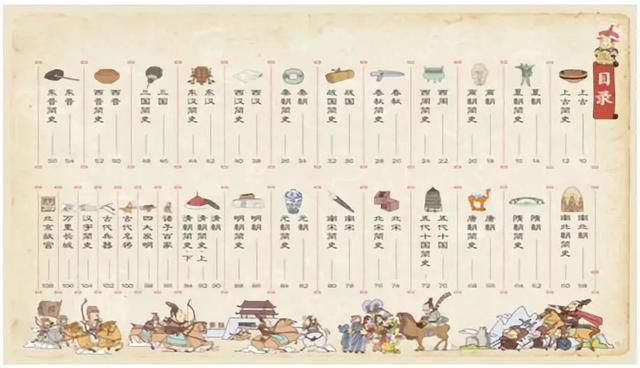 目录
上古 10
上古简史 12
夏朝 14
夏朝简史 16
商朝 18
商朝简史 20
西周 22
西周简史 24
春秋 26
春秋简史 28
战国 30
战国简史 32
秦朝 34
秦朝简史 36
西汉 38
西汉简史 40
东汉 42
东汉简史 44
三国 46
三国简史 48
西晋 50
西晋简史 52
东晋 54
东晋简史 56
南北朝 58
南北朝简史 60
隋朝 62
隋朝简史 64
唐朝 66
唐朝简史 68
五代十国 70
五代十国简史 72
北宋 74
北宋简史 76
南宋 78
南宋简史 80
元朝 82
元朝简史 84
明朝 86
明朝简史 88
清朝 90
清朝简史·上 92
清朝简史·下 94
诸子百家 96
四大发明 98
古代名 100
古代兵器 102
汉字简史 104
万里长城 106
北京故宫 108